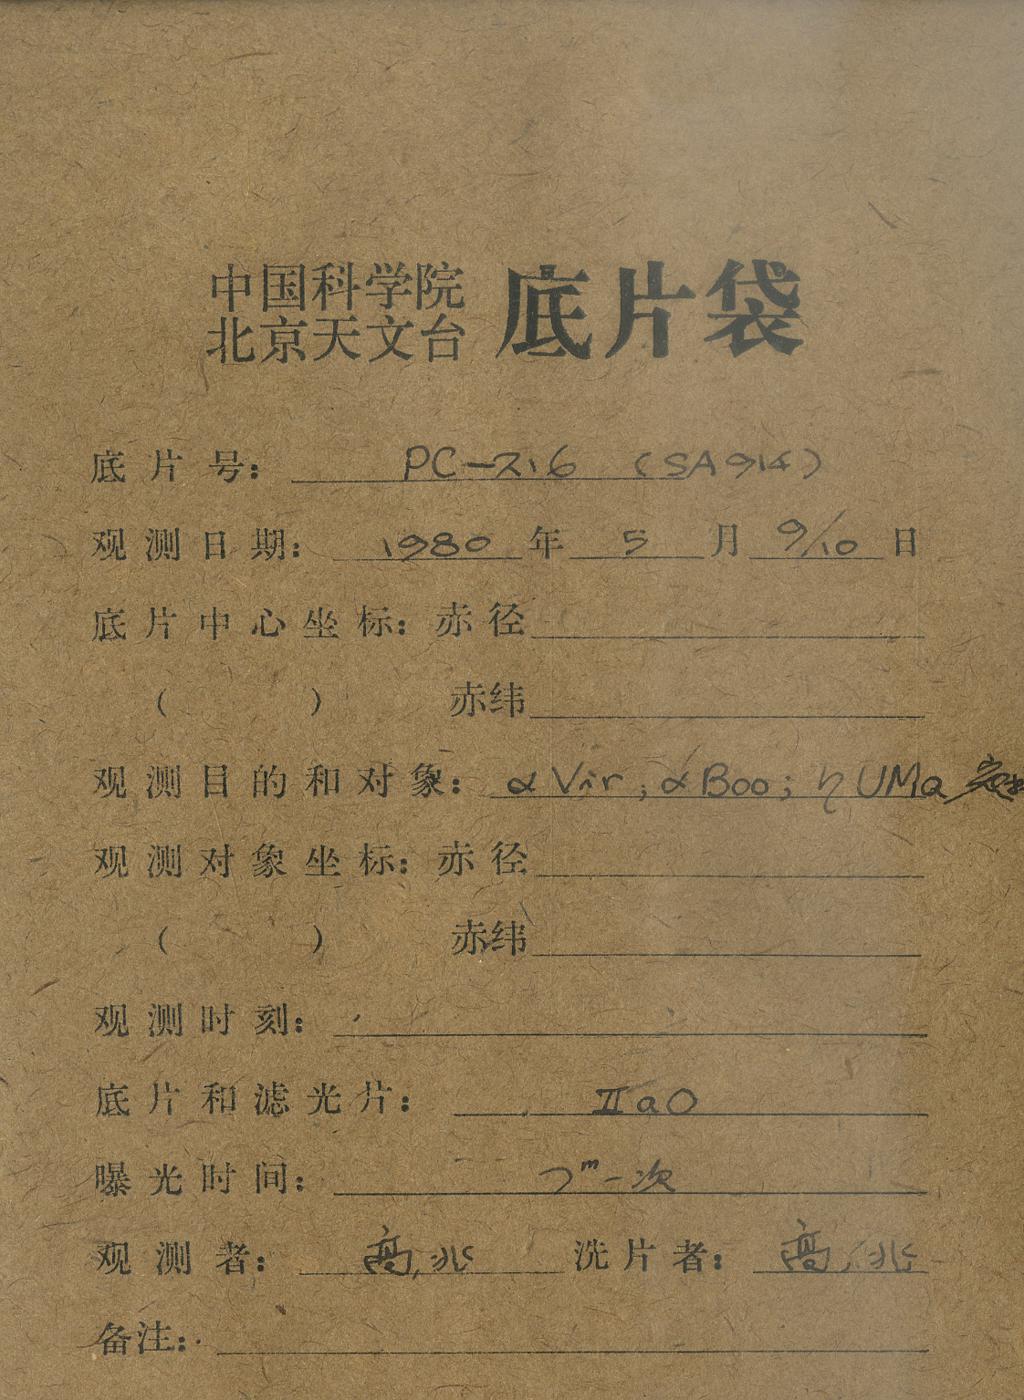 中国科学院
北京天文台 底片袋
底片号: PC-216 (SA914)
观测日期: 1980年5月9/10日
底片中心坐标:赤径
( ) 赤纬
观测目的和对象: αVir; αBoo; ηUMa
观测对象坐标:赤径
( ) 赤纬
观测时刻:
底片和滤光片: IIaO
曝光时间: ᵐ一次
观测者: 高,兆 洗片者: 高,兆
备注: